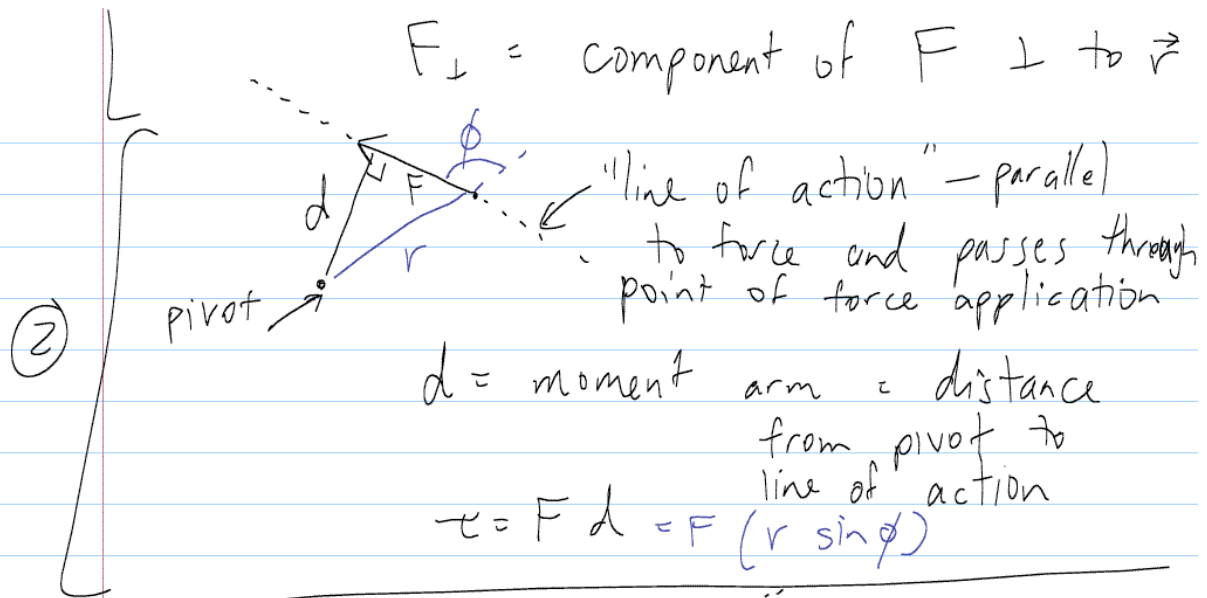 F⊥ = component of F ⊥ to r⃗
φ
d
F
r
"line of action" – parallel
to force and passes through
point of force application
pivot
②
d = moment arm = distance
from pivot to
line of action
τ = F d = F (r sin φ)